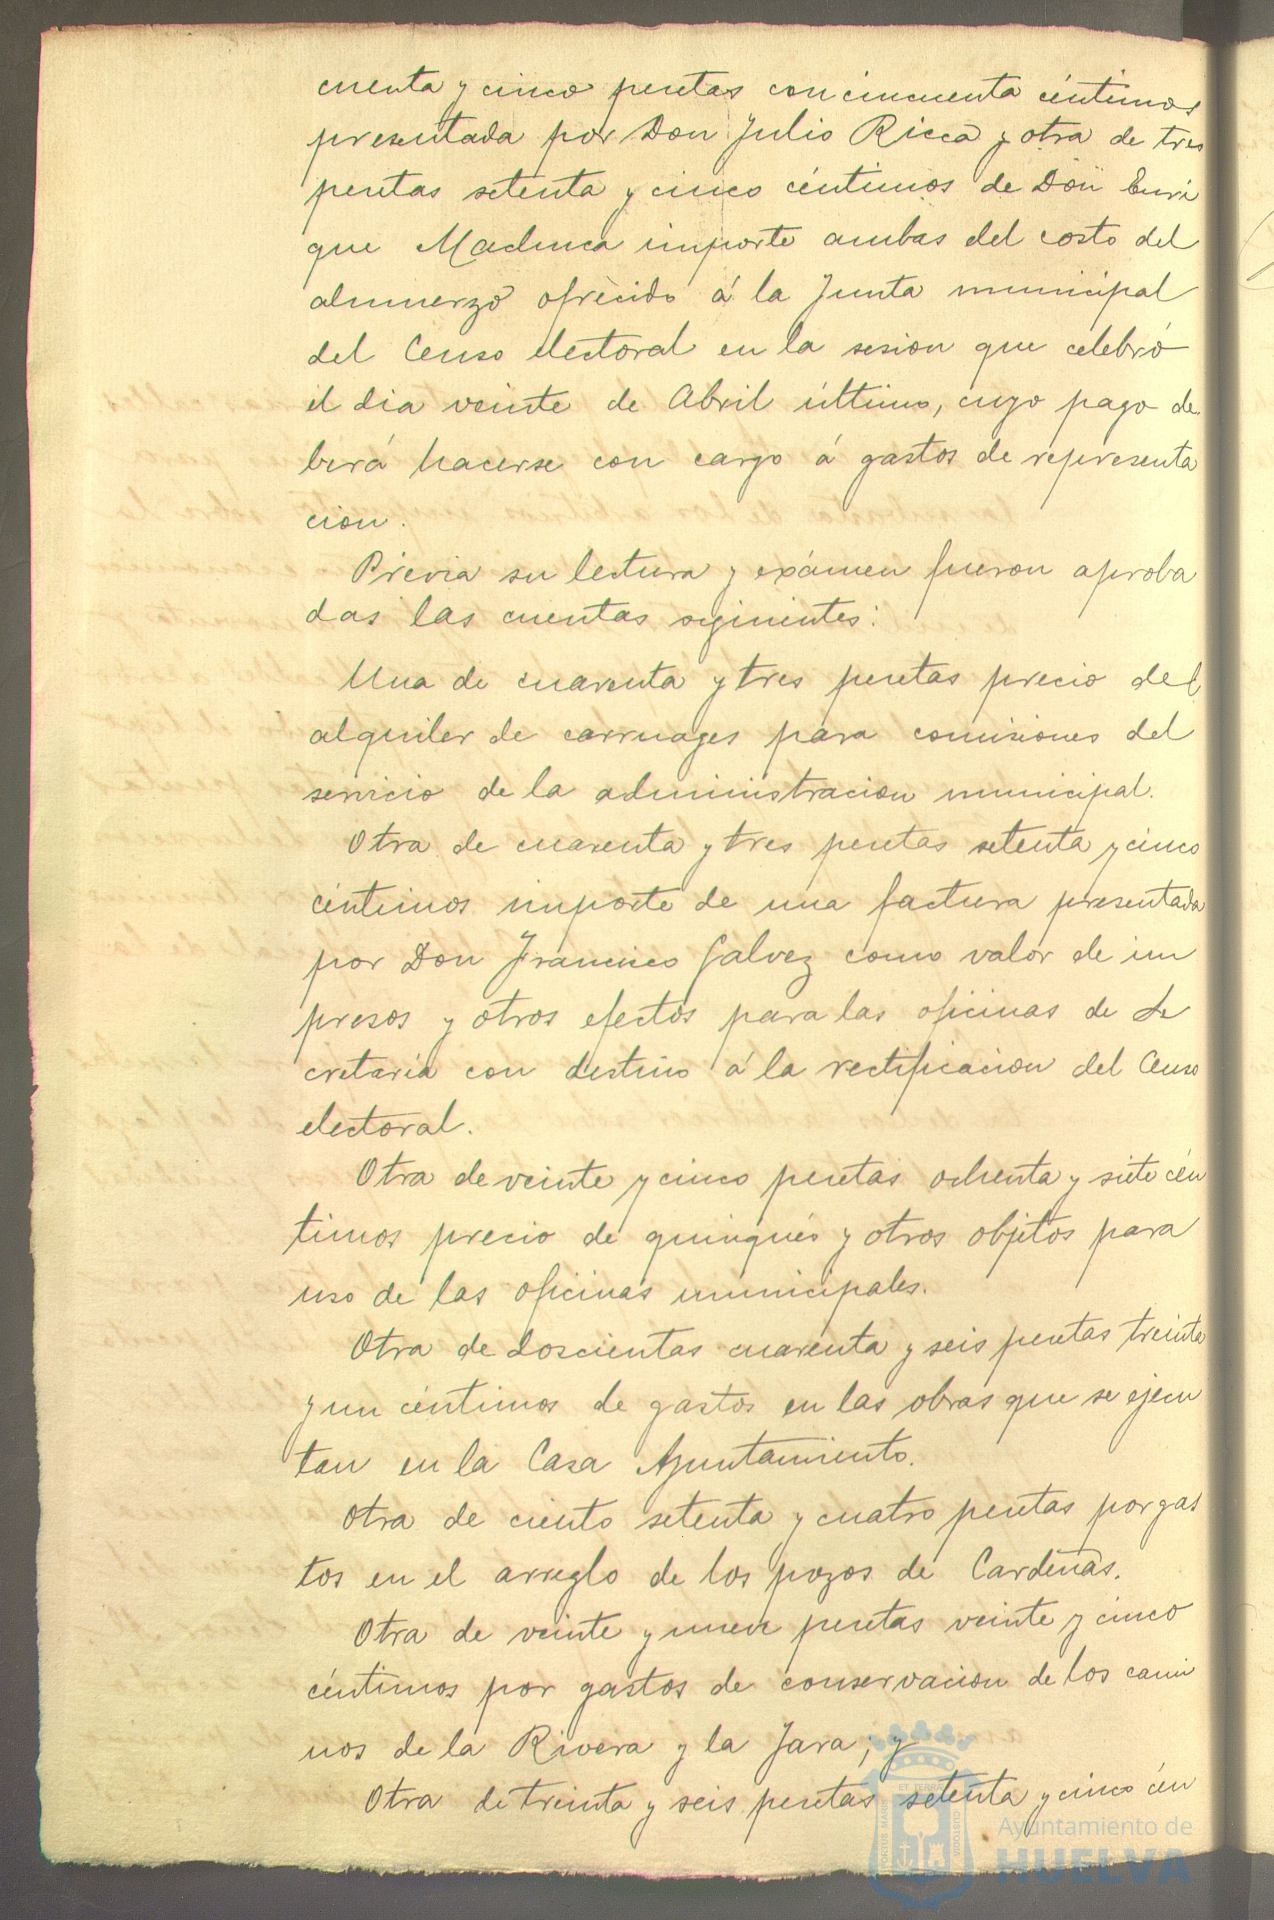 cuenta y cinco pesetas con cincuenta céntimos
presentada por Don Julio Ricca y otra de tres
pesetas setenta y cinco céntimos de Don Enri
que Machuca importe ambas del costo del
almuerzo ofrecido á la Junta municipal
del Censo electoral en la sesion que celebró
el dia veinte de Abril último, cuyo pago de
berá hacerse con cargo á gastos de representa
cion.
Prévia su lectura y exámen fueron aproba
das las cuentas siguientes:
Una de cuarenta y tres pesetas precio del
alquiler de carruages para comisiones del
servicio de la administracion municipal.
Otra de cuarenta y tres pesetas setenta y cinco
céntimos importe de una factura presentada
por Don Francisco Galvez como valor de im
presos y otros efectos para las oficinas de Se
cretaría con destino á la rectificacion del Censo
electoral.
Otra de veinte y cinco pesetas ochenta y siete cén
timos precio de quinqués y otros objetos para
uso de las oficinas municipales.
Otra de doscientas cuarenta y seis pesetas treinta
y un céntimos de gastos en las obras que se ejecu
tan en la Casa Ayuntamiento.
Otra de ciento setenta y cuatro pesetas por gas
tos en el arreglo de los pozos de Cardeñas.
Otra de veinte y nueve pesetas veinte y cinco
céntimos por gastos de conservacion de los cami
nos de la Rivera y la Jara; y
Otra de treinta y seis pesetas setenta y cinco cén
Ayuntamiento de
HUELVA